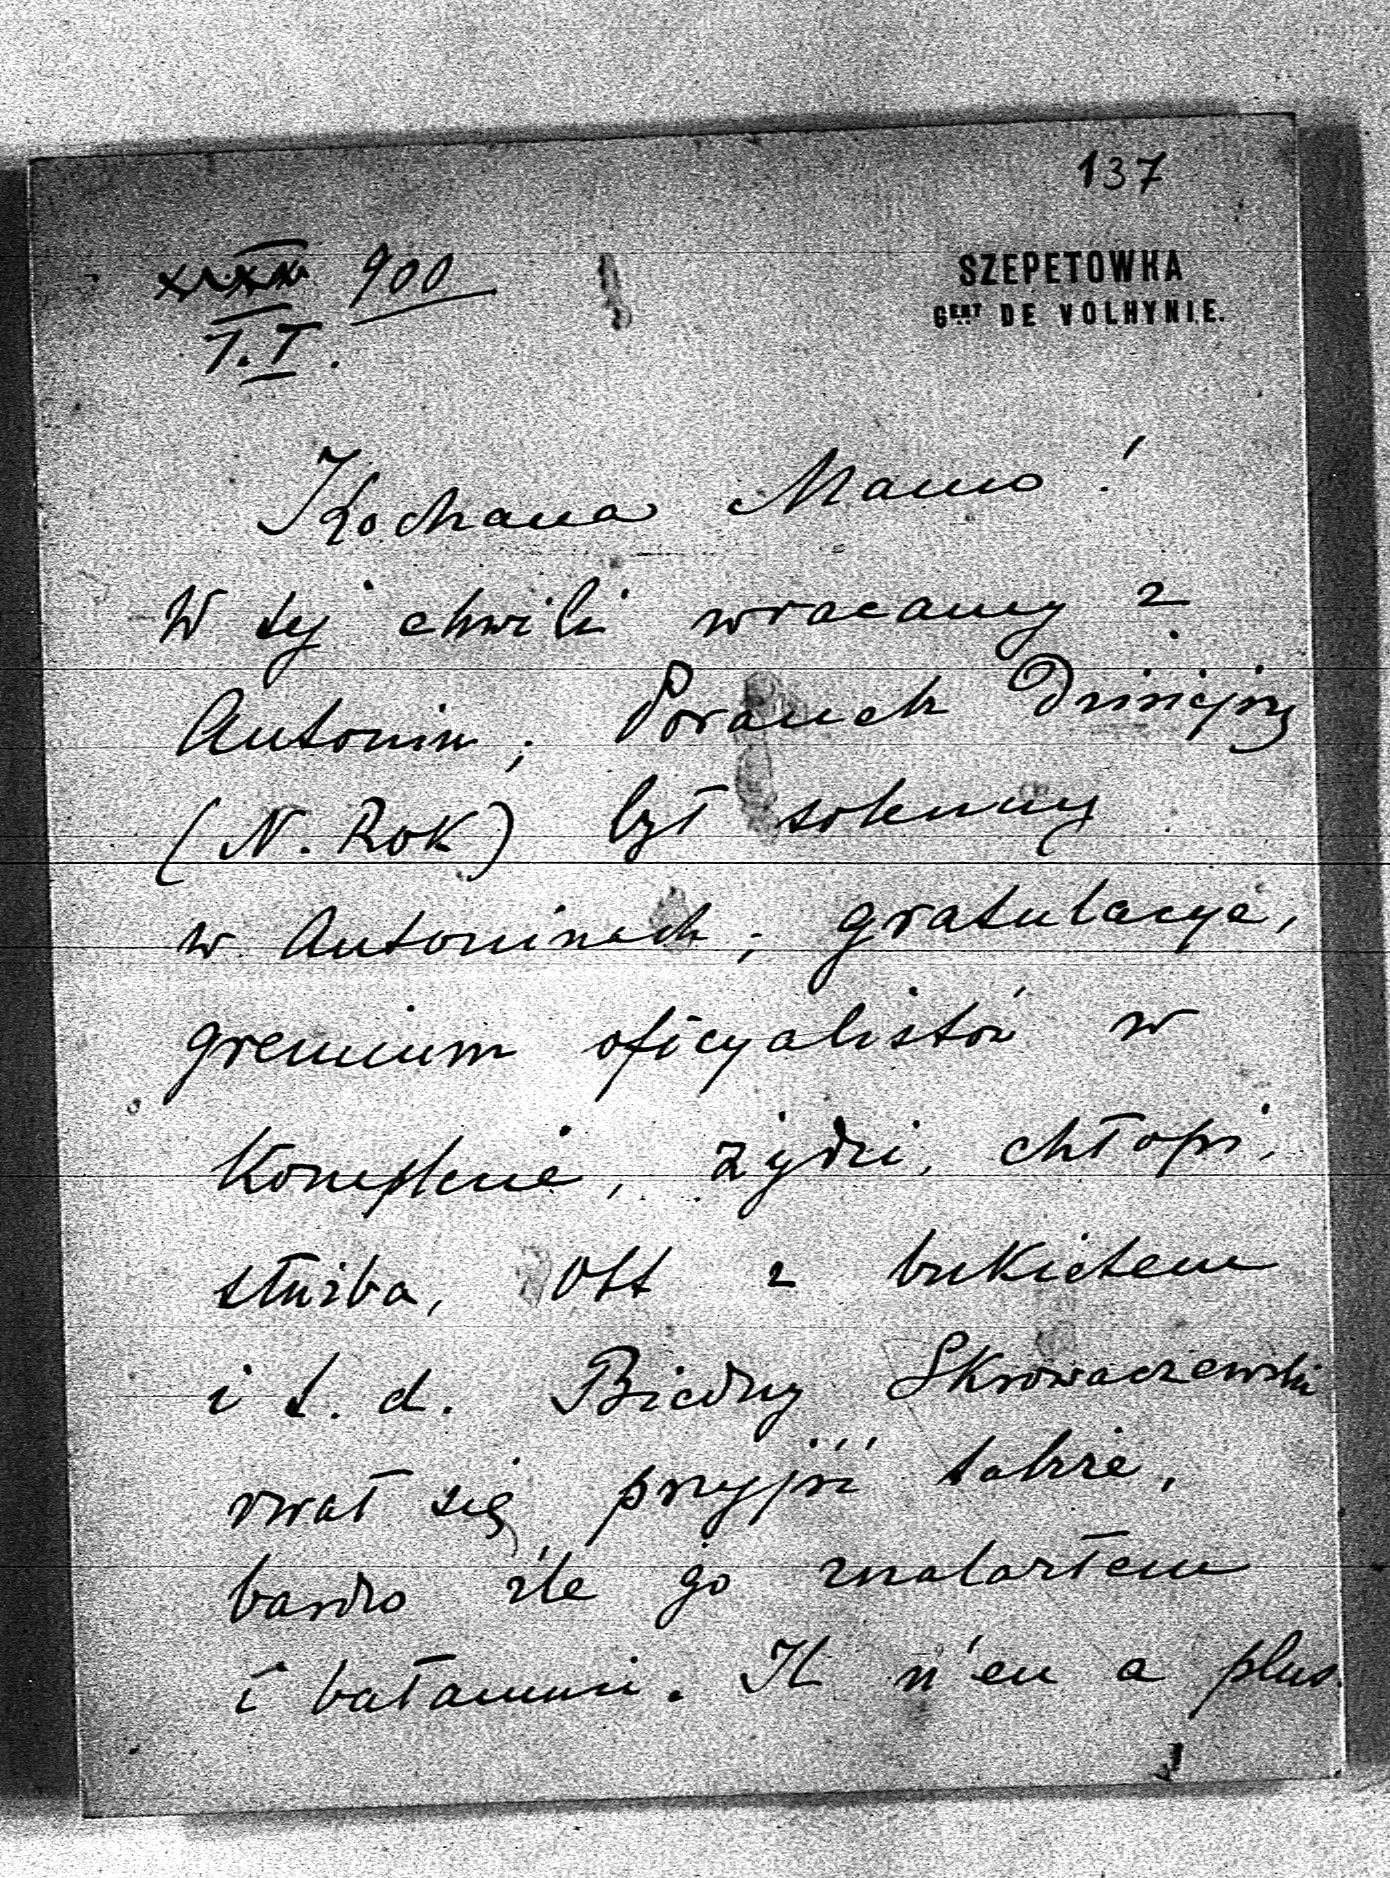 137
900
SZEPETOWKA
1. I.
GERT DE VOLHYNIE.
Kochana Mamo!
W tej chwili wracamy z
Antonin; Poranek Dzisiejszy
(N. Rok) był solenny
w Antoninach; gratulacye,
gremium oficyalistów w
komplecie, żydzi, chłopi,
służba, Ott z bukietem
i t. d. Biedny Skrowaczewski
rwał się przyjść także,
bardzo źle go znalazłem
i bałamuci. Il n'en a plus